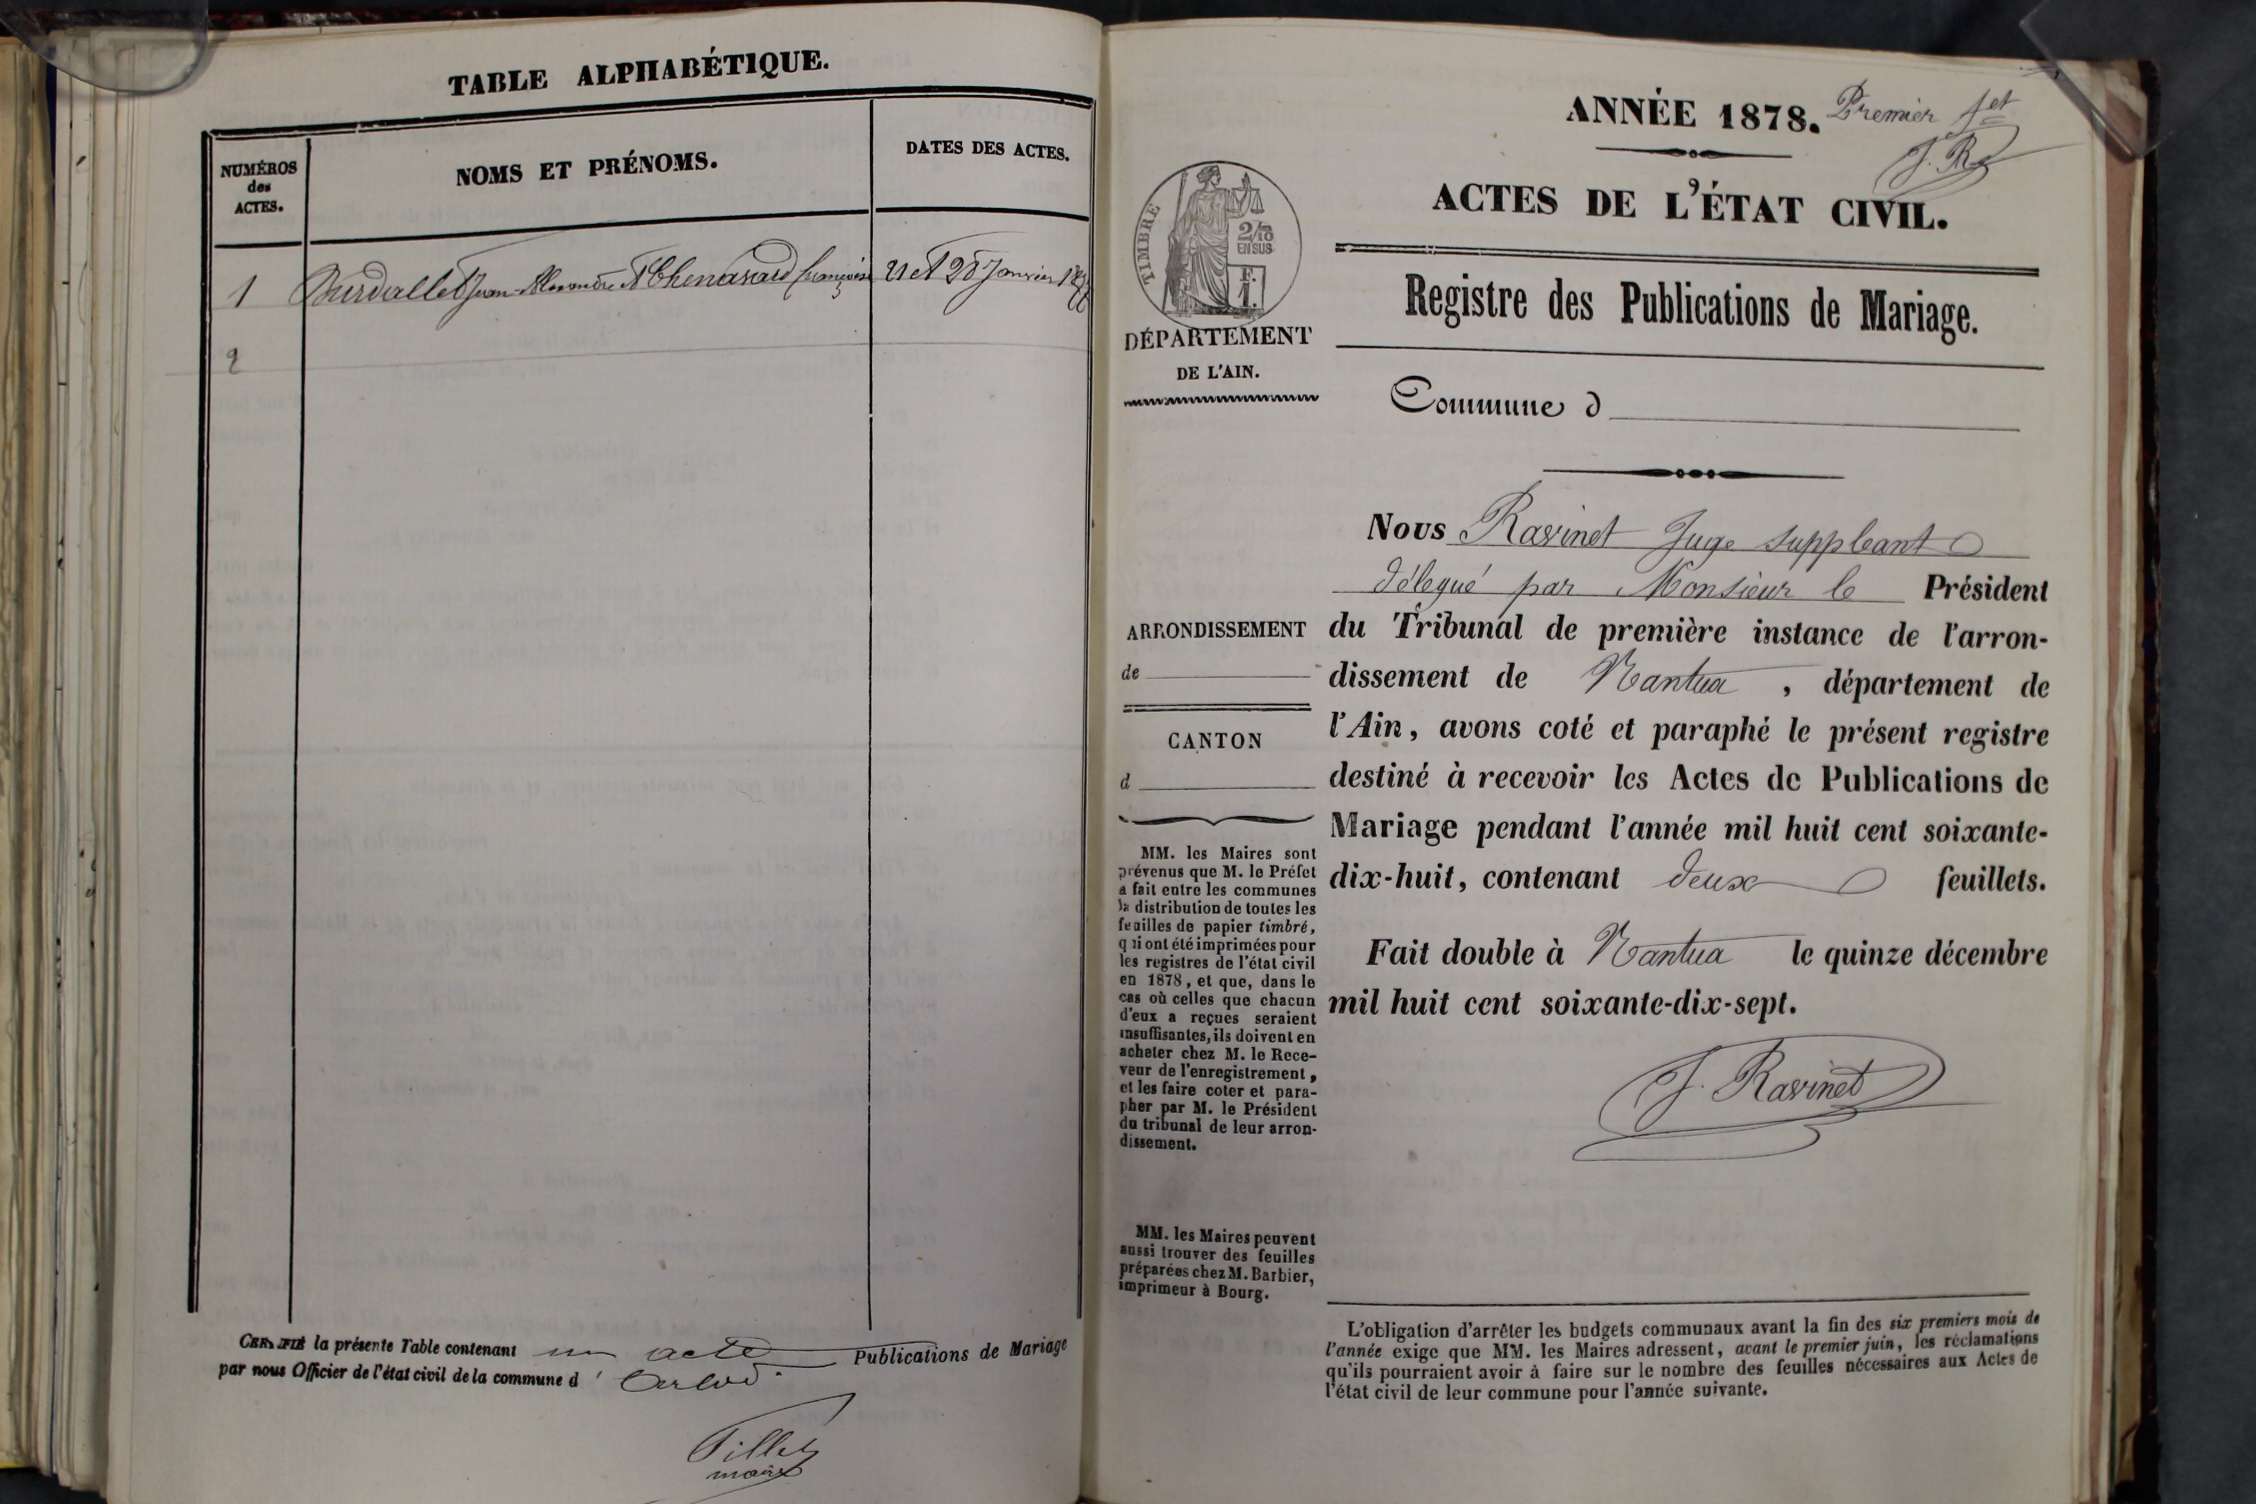 TABLE ALPHABÉTIQUE.
NUMÉROS
des
ACTES.
NOMS ET PRÉNOMS.
DATES DES ACTES.
1 Burdallet Jean Alexandre et Chenavard françoise 21 et 28 Janvier 1877
2
CERTIFIÉ la présente Table contenant un acte Publications de Mariage
par nous Officier de l'état civil de la commune d' Arlod.
Tillet
maire
ANNÉE 1878.
Premier fet
J. R
ACTES DE L'ÉTAT CIVIL.
TIMBRE
2/10
EN SUS
F.
1.
Registre des Publications de Mariage.
DÉPARTEMENT
DE L'AIN.
Commune d
Nous Ravinet Juge suppléant
délégué par Monsieur le Président
ARRONDISSEMENT
de
du Tribunal de première instance de l'arron-
dissement de Nantua, département de
CANTON
d
l'Ain, avons coté et paraphé le présent registre
destiné à recevoir les Actes de Publications de
Mariage pendant l'année mil huit cent soixante-
dix-huit, contenant deux feuillets.
Fait double à Nantua le quinze décembre
mil huit cent soixante-dix-sept.
J. Ravinet
MM. les Maires sont
prévenus que M. le Préfet
a fait entre les communes
la distribution de toutes les
feuilles de papier timbré,
qui ont été imprimées pour
les registres de l'état civil
en 1878, et que, dans le
cas où celles que chacun
d'eux a reçues seraient
insuffisantes, ils doivent en
acheter chez M. le Rece-
veur de l'enregistrement,
et les faire coter et para-
pher par M. le Président
du tribunal de leur arron-
dissement.
MM. les Maires peuvent
aussi trouver des feuilles
préparées chez M. Barbier,
imprimeur à Bourg.
L'obligation d'arrêter les budgets communaux avant la fin des six premiers mois de
l'année exige que MM. les Maires adressent, avant le premier juin, les réclamations
qu'ils pourraient avoir à faire sur le nombre des feuilles nécessaires aux Actes de
l'état civil de leur commune pour l'année suivante.